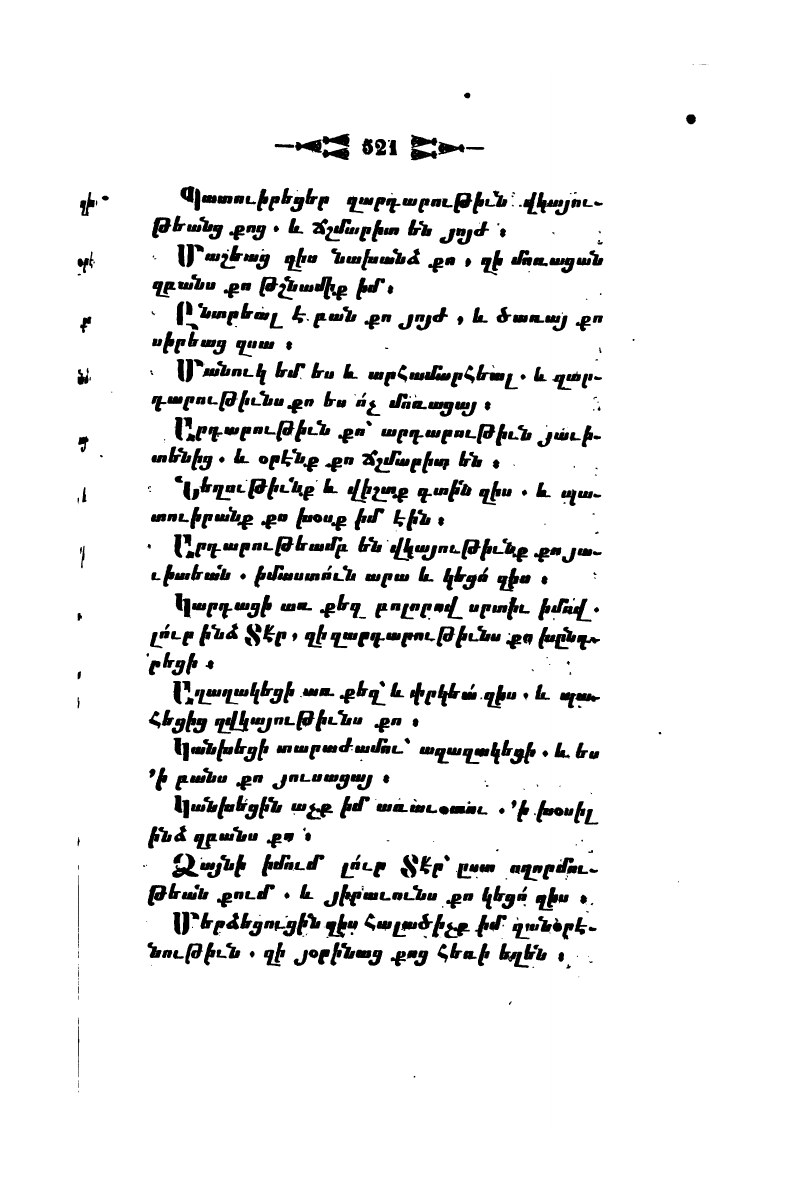 521
Պատուիրեցեր զարդարութիւն վկայու-
թեանց քոց . և ճշմարիտ են յոյժ ։
Մաշեաց զիս նախանձ քո , զի մոռացան
զբանս քո թշնամիք իմ ։
Ընտրեալ է բան քո յոյժ , և ծառայ քո
սիրեաց զսա ։
Մանուկ եմ ես և արհամարհեալ . և զար-
դարութիւնս քո ես ո՛չ մոռացայ ։
Արդարութիւն քո՝ արդարութիւն յաւի-
տենից . և օրէնք քո ճշմարիտ են ։
Նեղութիւնք և վիշտք գտին զիս . և պա-
տուիրանք քո խօսք իմ էին ։
Արդարութեամբ են վկայութիւնք քո յա-
ւիտեան . իմաստո՛ւն արա և կեցո՛ զիս ։
Կարդացի առ քեզ բոլորով սրտիւ իմով .
լո՛ւր ինձ Տէր , զի զարդարութիւնս քո խընդ-
րեցի ։
Աղաղակեցի առ քեզ՝ և փրկեա՛ զիս . և պա-
հեցից զվկայութիւնս քո ։
Կանխեցի տարաժամու՝ աղաղակեցի . և ես
՚ի բանս քո յուսացայ ։
Կանխեցին աչք իմ առաւօտու . ՚ի խօսիլ
ինձ զբանս քո ։
Ձայնի իմում լո՛ւր Տէր՝ ըստ ողորմու-
թեան քում . և յիրաւունս քո կեցո՛ զիս ։
Մերձեցուցին զիս հալածիչք իմ յանօրէ-
նութիւն . զի յօրինաց քոց հեռի եղեն ։